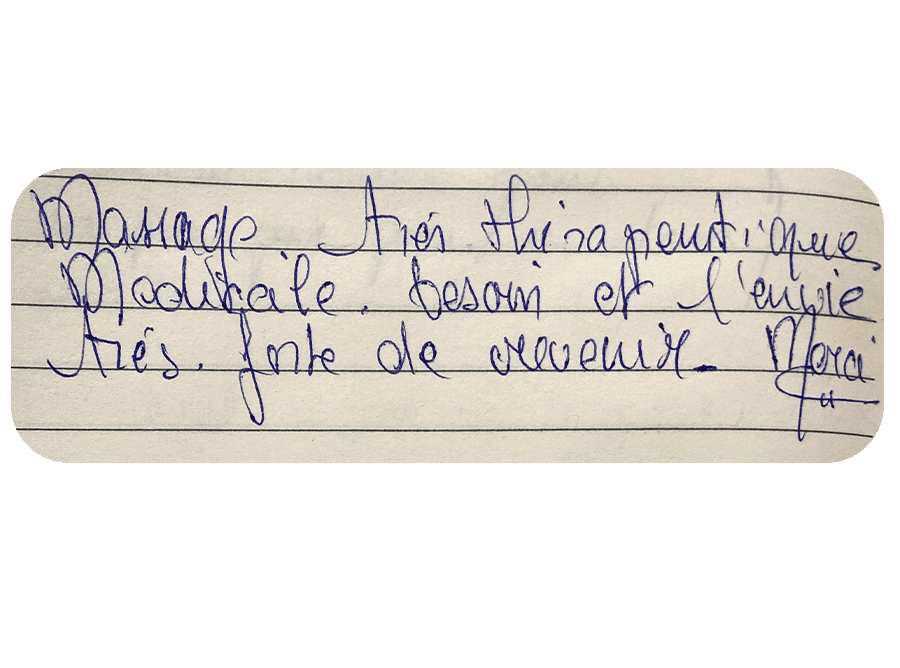 Massage très thérapeutique
Médicale. besoin et l'envie
très. forte de revenir. Merci